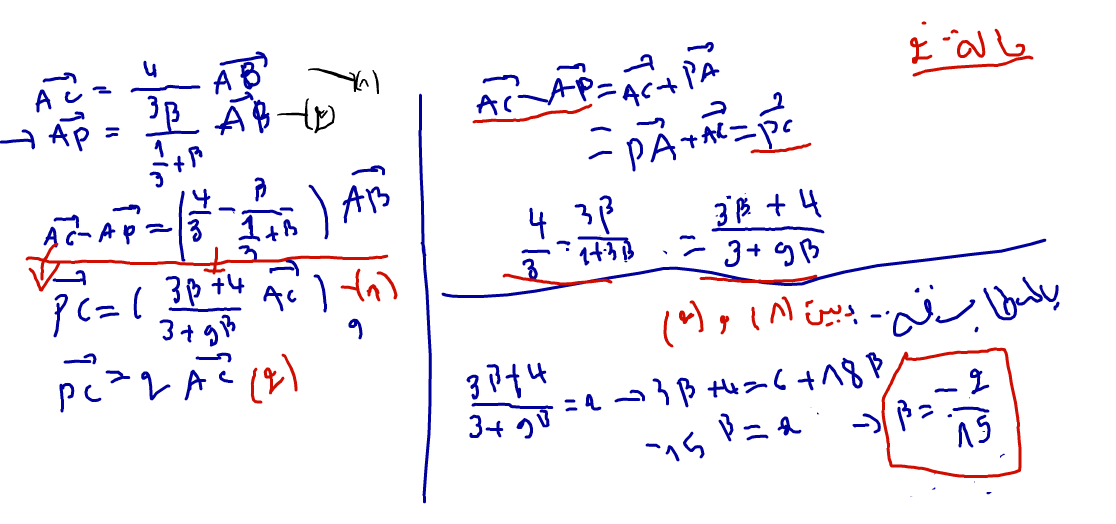 حالة 2
AC = 4/3β AB → (1)
→ AP = β/(1/3 + β) AB — (2)
AC - AP = (4/3 - β/(1/3 + β)) AB
PC = (3β+4 / 3+9β AC) — (1)
9
PC = 2 AC (2)
AC - AP = AC + PA
= PA + AC = PC
4/3 - 3β/(1+3β) = (3β + 4)/(3 + 9β)
بين (1) و (2)
(3β+4)/(3+9β) = 2 → 3β + 4 = 6 + 18β
-15β = 2 → β = -2/15